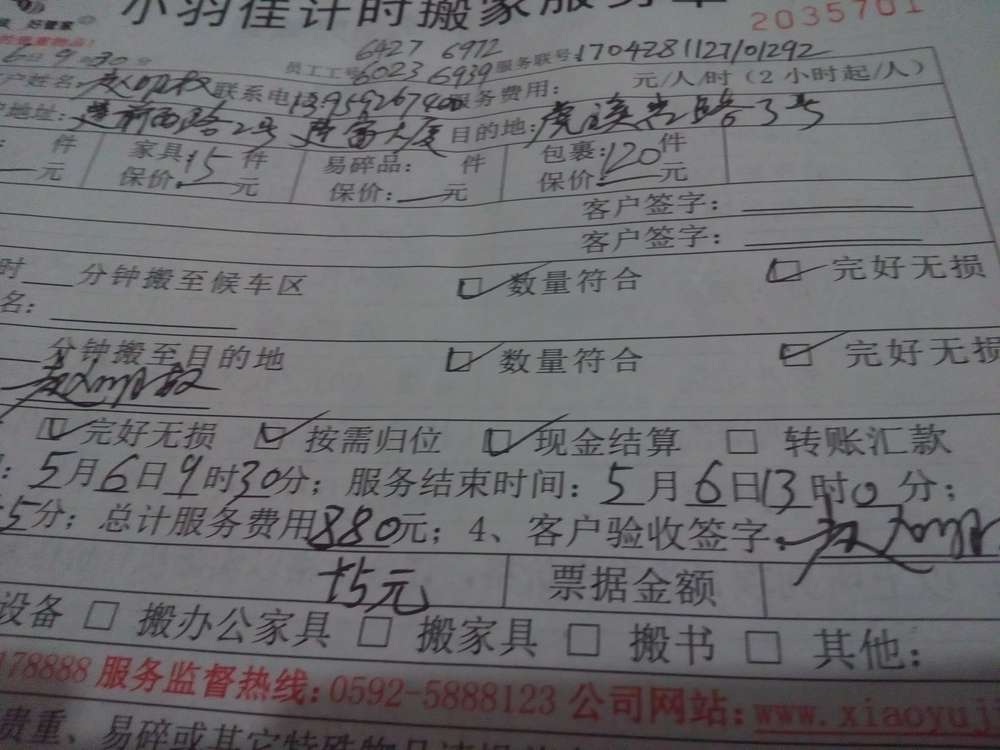 小羽佳计时搬家服务单
好管家
2035701
6427 6972
6日9时30分 员工工号:6023 6939 服务联号:1704281127/01292
户姓名: 联系电 13959267400 服务费用: 元/人/时（2小时起/人）
地址: 前西路2号 建富大厦 目的地: 虎溪岩路3号
件 家具:15件 易碎品: 件 包裹:120件
元 保价: 元 保价: 元 保价: 元
客户签字:
客户签字:
时 分钟搬至候车区 ☑ 数量符合 ☑ 完好无损
名:
分钟搬至目的地 ☑ 数量符合 ☑ 完好无损
☑ 完好无损 ☑ 按需归位 ☑ 现金结算 □ 转账汇款
: 5月6日9时30分; 服务结束时间: 5月6日13时0分;
5分; 总计服务费用880元; 4、客户验收签字:
+5元 票据金额
设备 □ 搬办公家具 □ 搬家具 □ 搬书 □ 其他:
178888 服务监督热线:0592-5888123 公司网站:www.xiaoyuj
贵重、易碎或其它特殊物品请